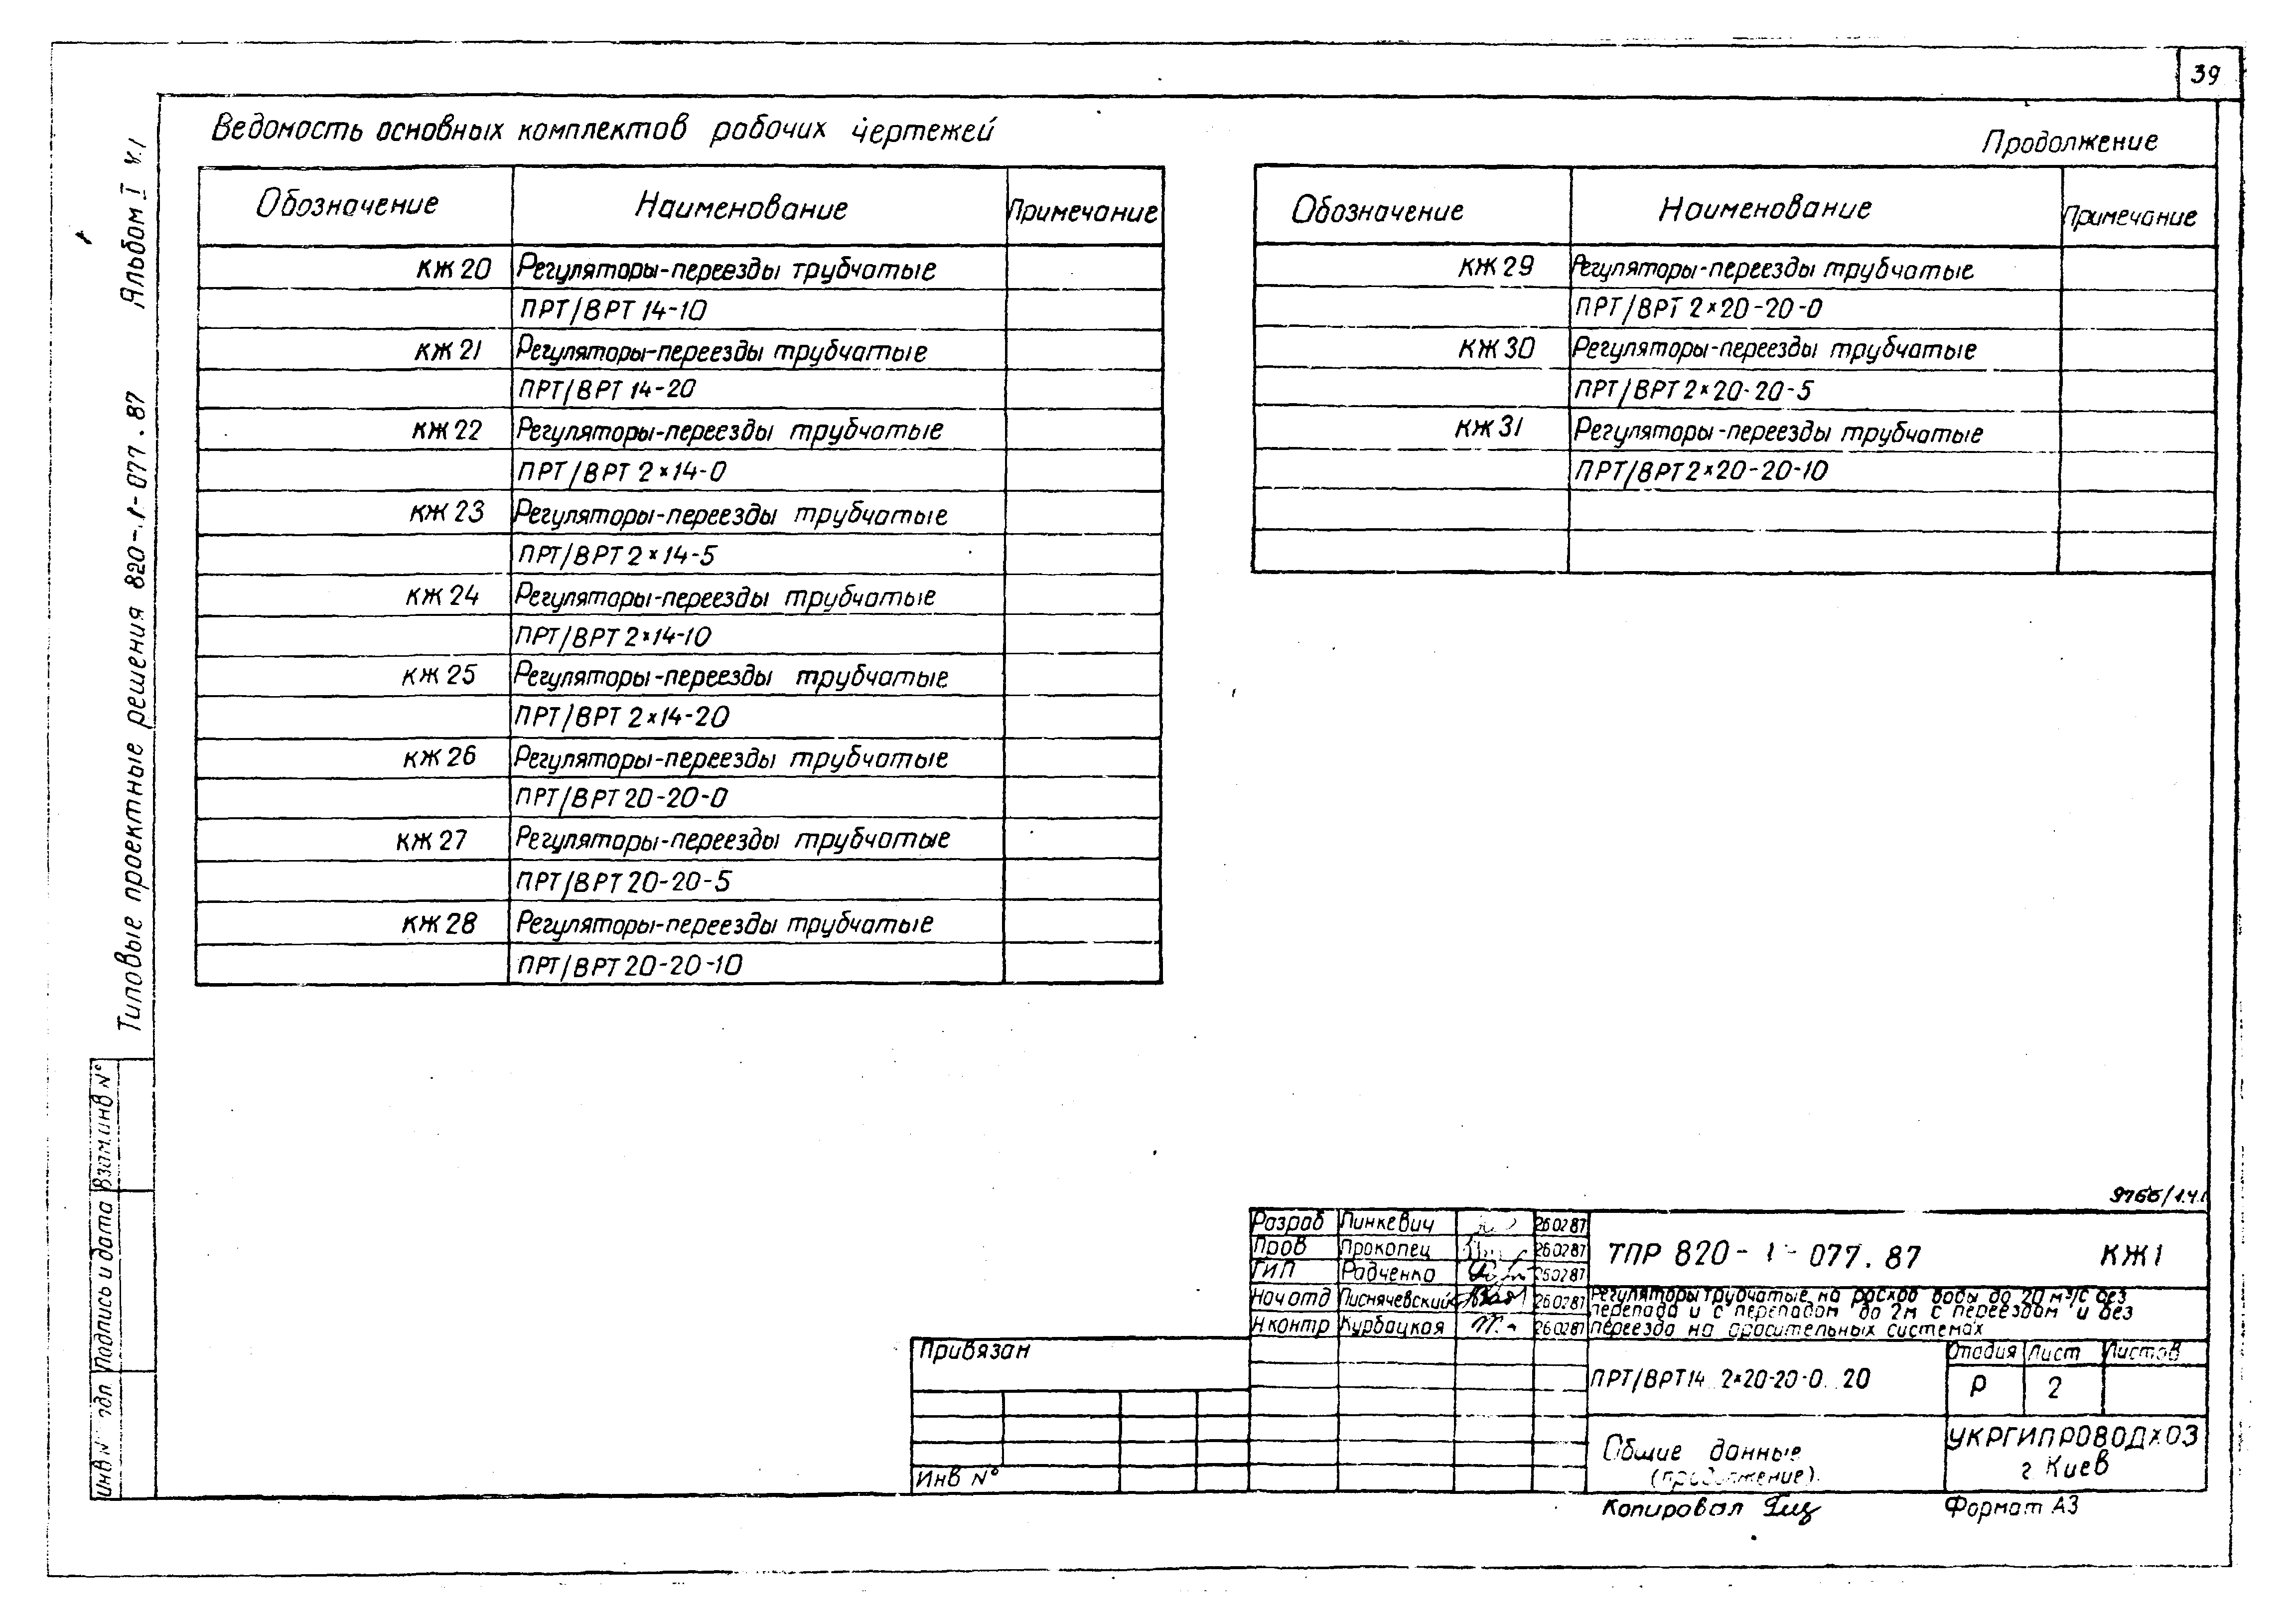 39
Альбом I ч.1
Типовые проектные решения 820-1-077.87
Ведомость основных комплектов рабочих чертежей
Обозначение Наименование Примечание
КЖ 20 Регуляторы-переезды трубчатые
ПРТ/ВРТ 14-10
КЖ 21 Регуляторы-переезды трубчатые
ПРТ/ВРТ 14-20
КЖ 22 Регуляторы-переезды трубчатые
ПРТ/ВРТ 2×14-0
КЖ 23 Регуляторы-переезды трубчатые
ПРТ/ВРТ 2×14-5
КЖ 24 Регуляторы-переезды трубчатые
ПРТ/ВРТ 2×14-10
КЖ 25 Регуляторы-переезды трубчатые
ПРТ/ВРТ 2×14-20
КЖ 26 Регуляторы-переезды трубчатые
ПРТ/ВРТ 20-20-0
КЖ 27 Регуляторы-переезды трубчатые
ПРТ/ВРТ 20-20-5
КЖ 28 Регуляторы-переезды трубчатые
ПРТ/ВРТ 20-20-10
Продолжение
Обозначение Наименование Примечание
КЖ 29 Регуляторы-переезды трубчатые
ПРТ/ВРТ 2×20-20-0
КЖ 30 Регуляторы-переезды трубчатые
ПРТ/ВРТ 2×20-20-5
КЖ 31 Регуляторы-переезды трубчатые
ПРТ/ВРТ 2×20-20-10
Взам.инв N°
Подпись и дата
Инв N°
Разраб Линкевич 260287
Пров Прокопец 260287
ГИП Радченко 260287
Нач отд Лиснячевский 260287
Н контр Курбацкая 260287
ТПР 820-1-077.87 КЖ1
Регуляторы трубчатые на расход воды до 20 м³/с без
перепада и с перепадом до 2м с переездом и без
переезда на оросительных системах
Привязан
Инв N°
ПРТ/ВРТ14..2×20-20-0..20
Стадия Лист Листов
Р 2
Общие данные
(продолжение).
УКРГИПРОВОДХОЗ
г Киев
Копировал
Формат А3